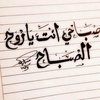 صباحي انت يا زوح
الصباح